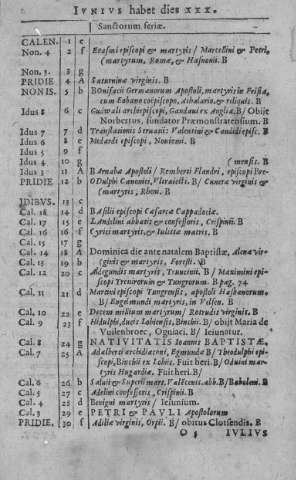 IVNIVS habet dies XXX.
Sanctorum feriæ.
CALEN. 1 e
Non. 4 2 f Erasmi episcopi & martyris / Marcellini & Petri,
(martyrum, Romæ, & Hasnonii. B
Non. 3. 3 g
PRIDIE 4 A Saturninæ virginis. B
NONIS. 5 b BOnifacii Germanorum Apostoli, martyris in Frisia,
cum Eobano coëpiscopo, Athalario, & reliquis. B
Idus 8 6 c Guduvali archiepiscopi, Gandaui ex Anglia. B/ Obijt
Norbertus, fundator Præmonstratensium. B
Idus 7 7 d Translationis Seruatii: Valentini &
Idus 6 8 e Medardi episcopi, Nouiomi. B
Idus 5 9 f
Idus 4 10 g (mensis. B
Idus 3 11 A BArnabæ Apostoli / Remberti Flandri, episcopi Bre-
PRIDIE 12 b ODulphi Canonici, Vltraiecti. B/ Cuneræ virginis &
(martyris, Rheni. B
IDIBVS. 13 c
Cal. 18 14 d BAsilii episcopi Cæsareæ Cappadociæ.
Cal. 17 15 e LAndelini abbatis & confessoris, Crispinii. B
Cal. 16 16 f Cyrici martyris, & Iulittæ matris. B
Cal. 15 17 g
Cal. 14 18 A Dominica die ante natalem Baptistæ, Alenæ vir-
Cal. 13 19 b ginis & martyris, Foresti. B
Cal. 12 20 c Adelgundis martyris, Truncinii. B / Maximini epi-
scopi Treuirorum & Tungrorum. B pag. 74
Cal. 11 21 d Martini episcopi Tungrensis, apostoli Hasbanorum.
B/ Engelmundi martyris, in Velsen. B
Cal. 10 22 e Decem millium martyrum / Rotrudis virginis. B
Cal. 9 23 f Hidulphi, ducis Lobiensis, Binchii. B/ obijt Maria de
Vuillenbroec, Ogniaci. B / Ieiunium.
Cal. 8 24 g NATIVITATIS Ioannis BAPTISTÆ,
Cal. 7 25 A Adalberti archidiaconi, Egmundæ B/ Theodulphi epi-
scopi, Binchii ex Lobiis. Fuit heri. B/ Oduini mar-
tyris Hugardiæ. Fuit heri. B/
Cal. 6 26 b Saluii & Superii mart. Valēcenis. abb. B/ Baboleni. B
Cal. 5 27 c Crispini. B
Cal. 4 28 d Benigni martyris / Ieiunium.
Cal. 3 29 e PETRI & PAVLI Apostolorum
PRIDIE. 30 f Adiliæ virginis, Orpii. B/ obitus Clotsendis. B
IVLIVS